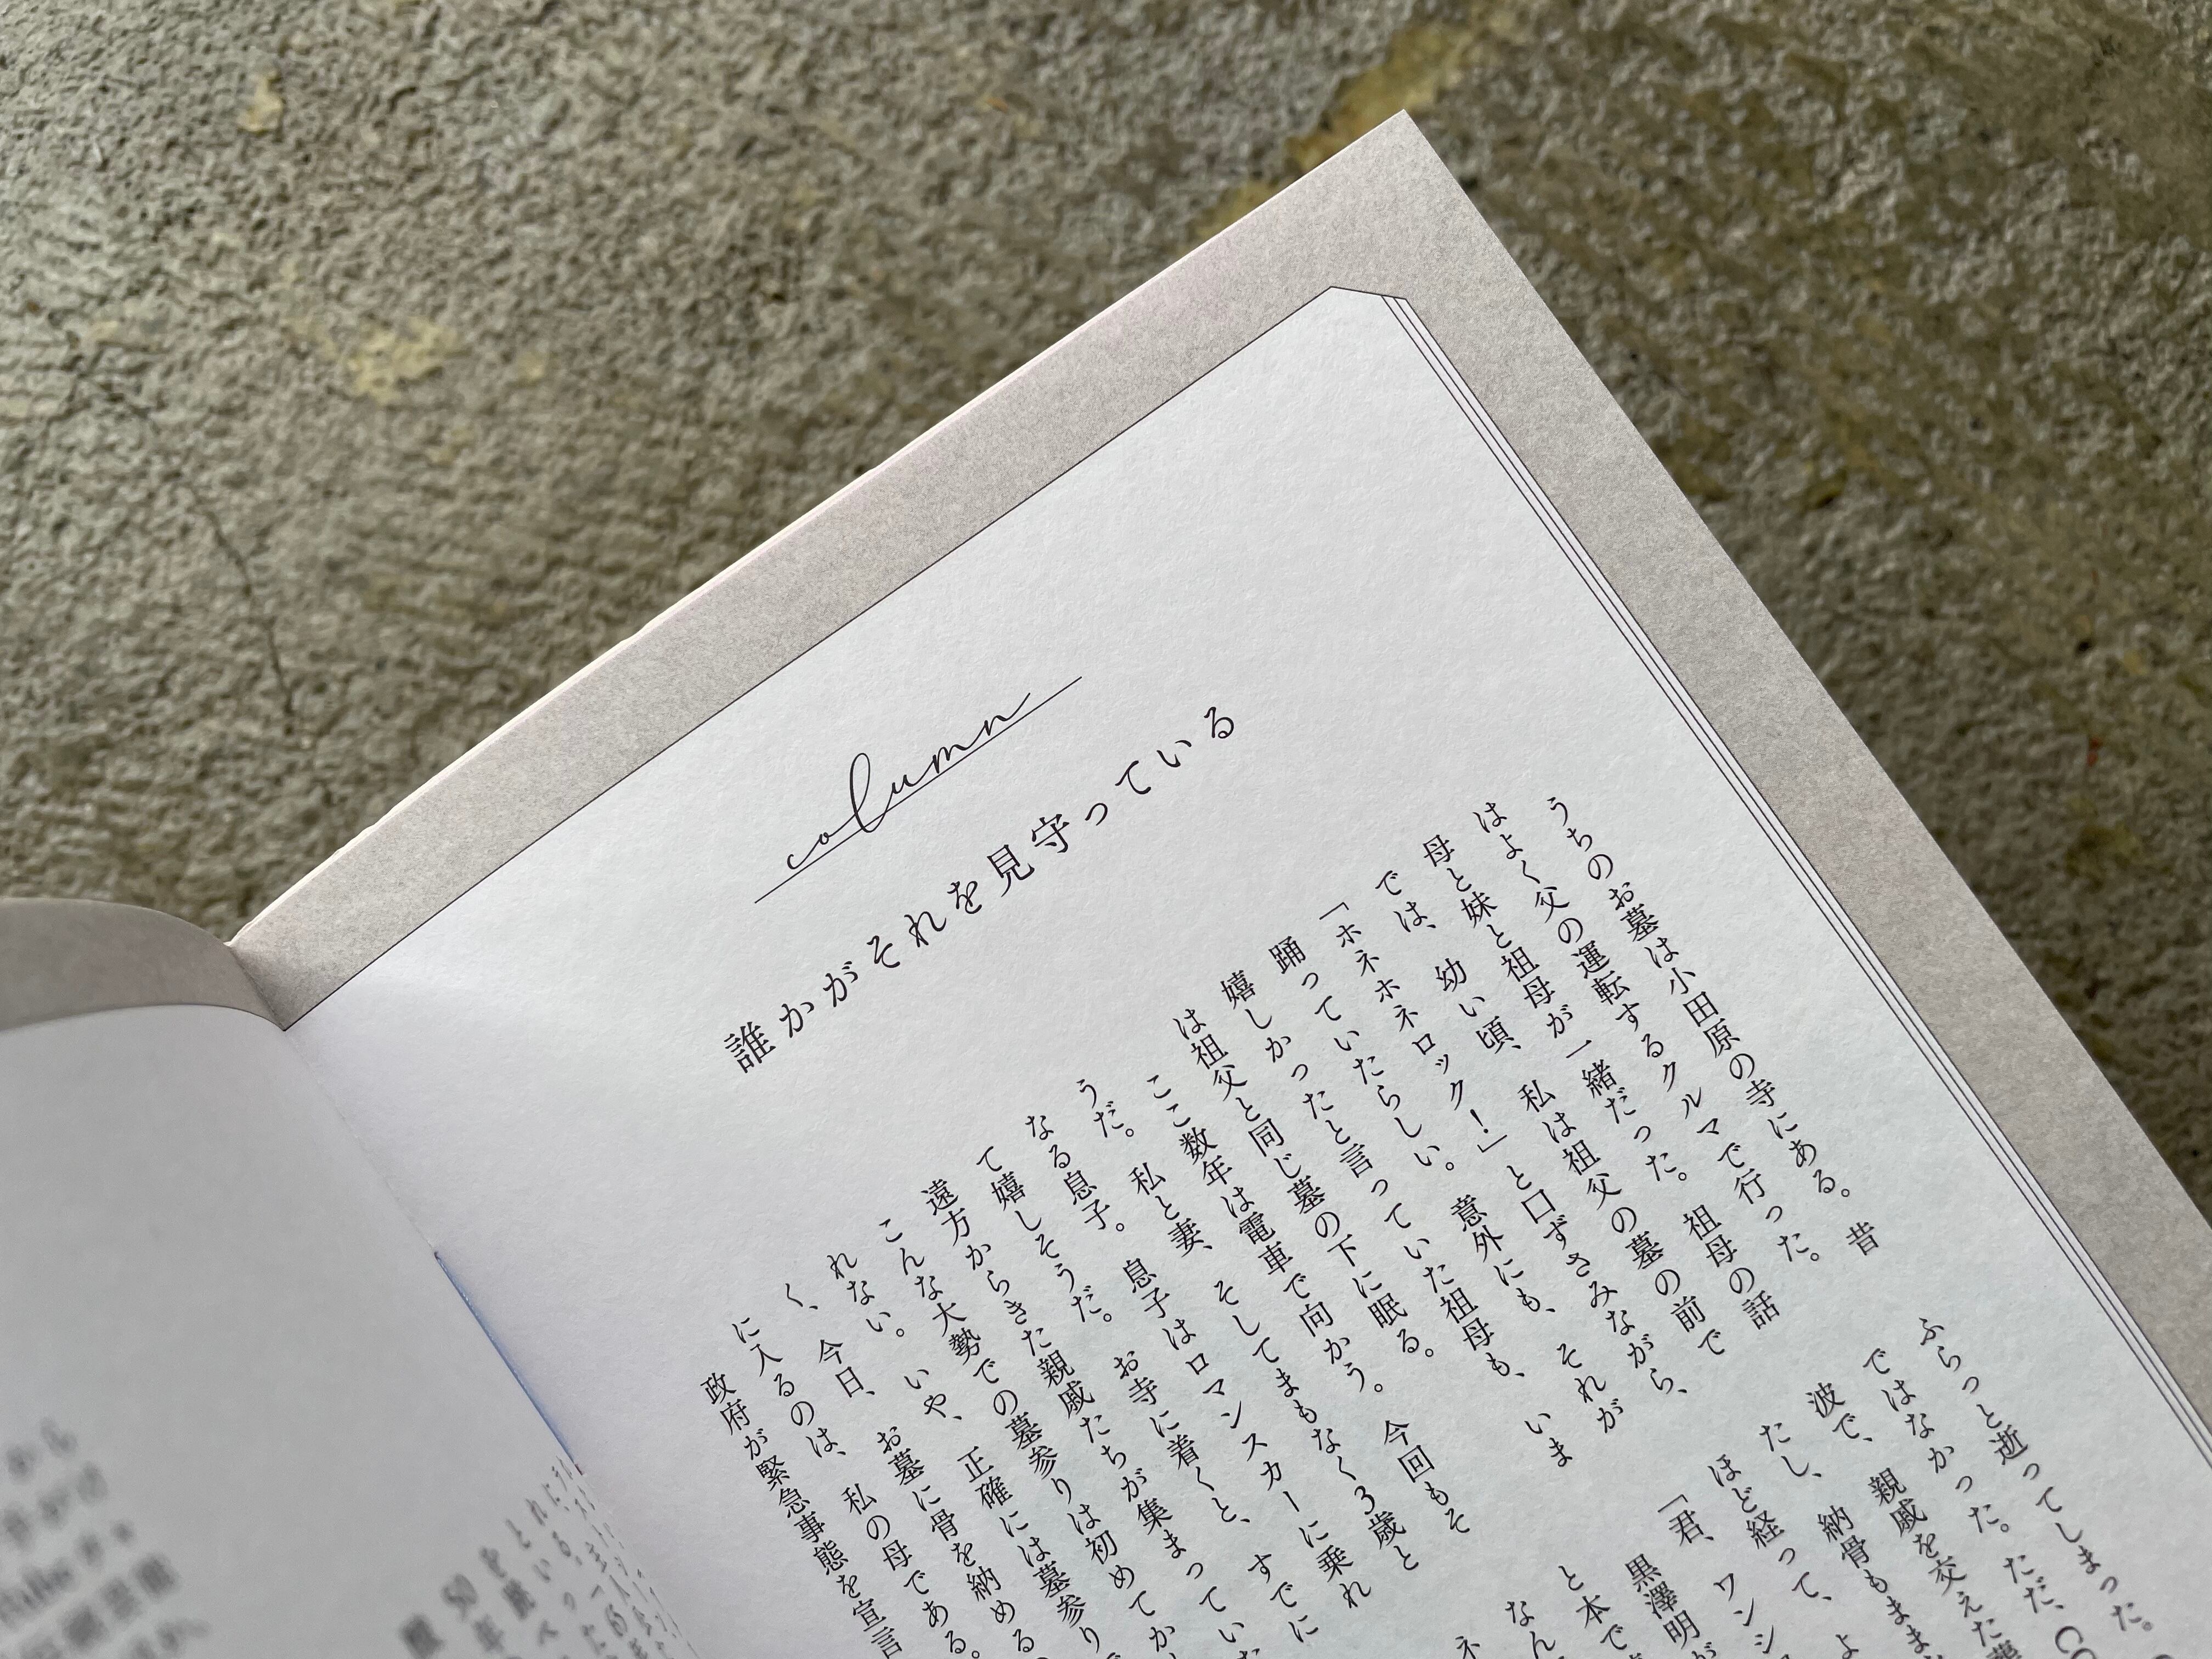 column
誰かがそれを見守っている
うちのお墓は小田原の寺にある。昔
はよく父の運転するクルマで行った。
母と妹と祖母が一緒だった。祖母の話
では、幼い頃、私は祖父の墓の前で
「ホネホネロック！」と口ずさみながら、
踊っていたらしい。意外にも、それが
嬉しかったと言っていた祖母も、いま
は祖父と同じ墓の下に眠る。
ここ数年は電車で向かう。今回もそ
うだ。私と妻、そしてまもなく3歳と
なる息子。息子はロマンスカーに乗れ
て嬉しそうだ。お寺に着くと、すでに
遠方からきた親戚たちが集まっていた
こんな大勢での墓参りは初めてか
れない。いや、正確には墓参り
く、今日、お墓に骨を納める
に入るのは、私の母である。
政府が緊急事態を宣言
ふらっと逝ってしまった。
ではなかった。ただ、CO
波で、親戚を交えた
たし、納骨もまま
ほど経って、よ
「君、ワンシ
黒澤明が
と本で
なん
ネ